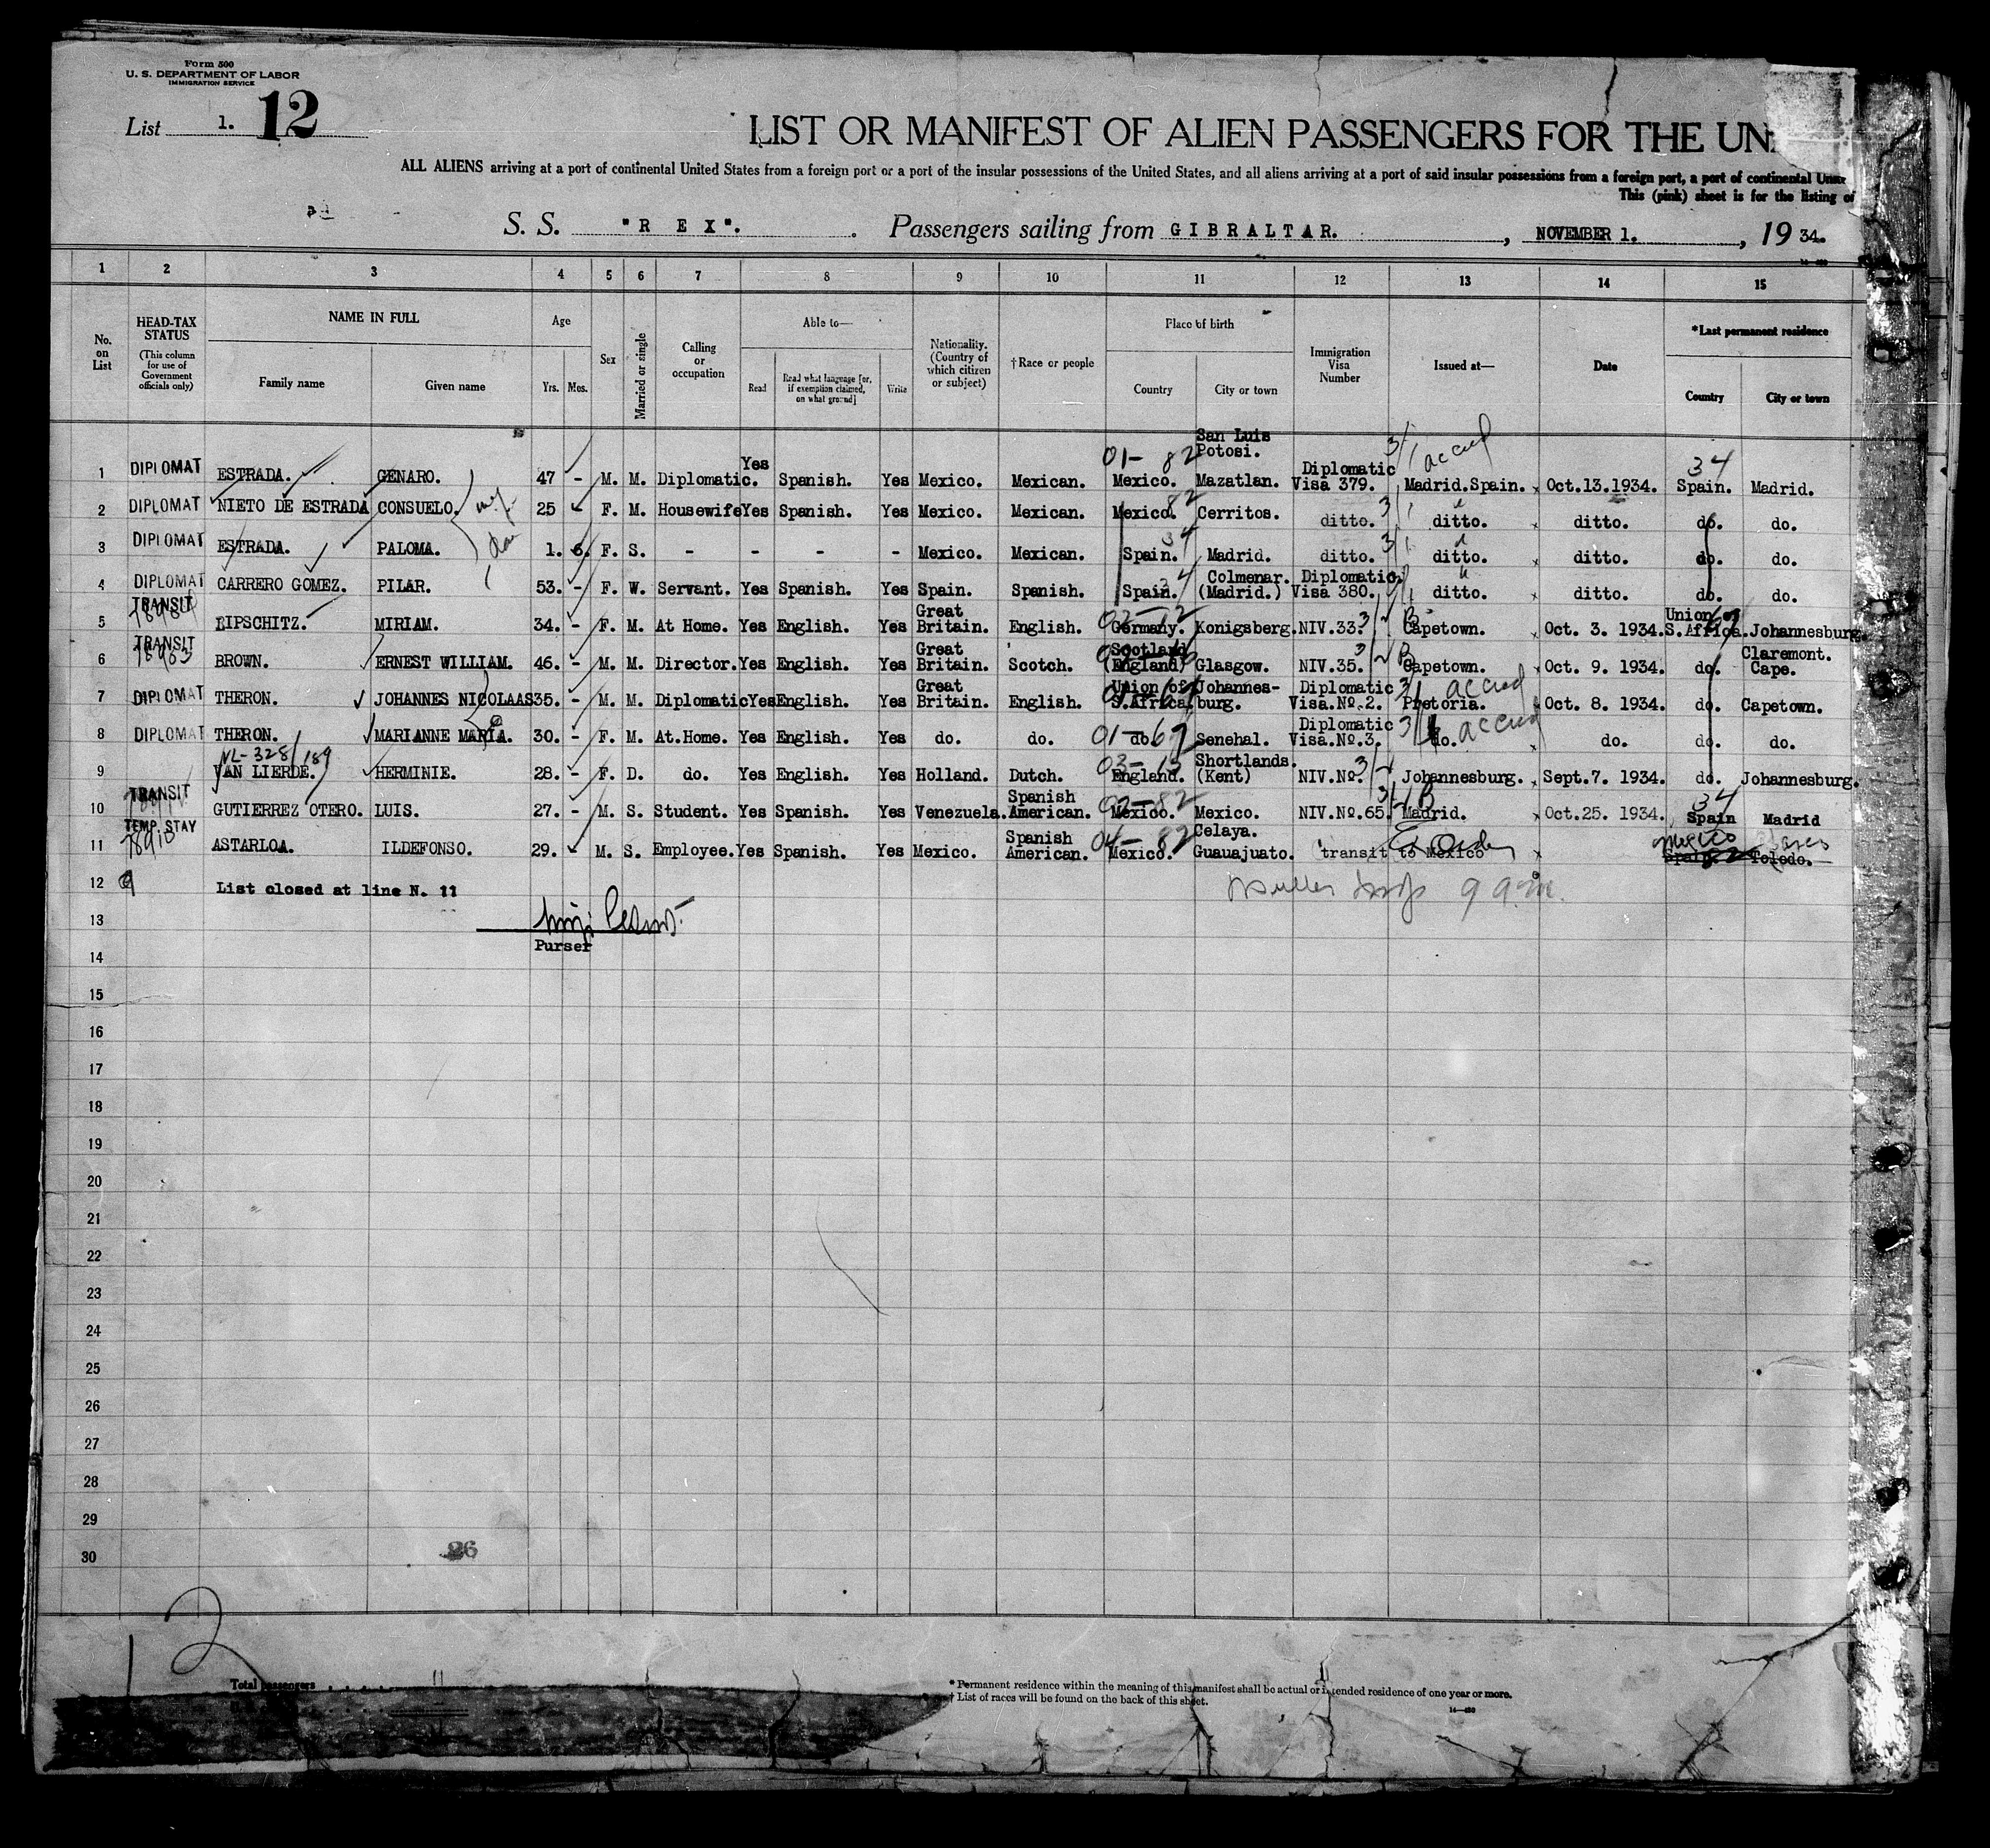 Form 500
U. S. DEPARTMENT OF LABOR
IMMIGRATION SERVICE
List 1. 12
LIST OR MANIFEST OF ALIEN PASSENGERS FOR THE UN
ALL ALIENS arriving at a port of continental United States from a foreign port or a port of the insular possessions of the United States, and all aliens arriving at a port of said insular possessions from a foreign port, a port of continental
This (pink) sheet is for the listing of
S. S. "R E X". Passengers sailing from GIBRALTAR. , NOVEMBER 1. , 19 34.
1 2 3 4 5 6 7 8 9 10 11 12 13 14 15
No. on List
HEAD-TAX STATUS (This column for use of Government officials only)
NAME IN FULL
Family name Given name
Age Yrs. Mos.
Sex
Married or single
Calling or occupation
Able to—
Read Read what language [or, if exemption claimed, on what ground] Write
Nationality. (Country of which citizen or subject)
†Race or people
Place of birth
Country City or town
Immigration Visa Number
Issued at—
Date
*Last permanent residence
Country City or town
1 DIPLOMAT ESTRADA. GENARO. 47 - M. M. Diplomatic. Yes Spanish. Yes Mexico. Mexican. 01-82 Mexico. San Luis Potosi. Mazatlan. Diplomatic Visa 379. 3/1 accred Madrid.Spain. Oct.13.1934. 34 Spain. Madrid.
2 DIPLOMAT NIETO DE ESTRADA CONSUELO. 25 F. M. Housewife Yes Spanish. Yes Mexico. Mexican. 82 Mexico. Cerritos. ditto. 3/1 ditto. ditto. do. do.
3 DIPLOMAT ESTRADA. PALOMA. 1. 6. F. S. - - - - Mexico. Mexican. 34 Spain. Madrid. ditto. 3/1 ditto. ditto. do. do.
4 DIPLOMAT CARRERO GOMEZ. PILAR. 53. - F. W. Servant. Yes Spanish. Yes Spain. Spanish. 34 Spain. Colmenar. (Madrid.) Diplomatic Visa 380. ditto. ditto. do. do.
5 TRANSIT LIPSCHITZ. MIRIAM. 34. - F. M. At Home. Yes English. Yes Great Britain. English. Germany. Konigsberg. NIV.33. Capetown. Oct. 3. 1934. Union S.Africa. Johannesburg.
6 TRANSIT 78983 BROWN. ERNEST WILLIAM. 46. - M. M. Director. Yes English. Yes Great Britain. Scotch. Scotland (England) Glasgow. NIV.35. Capetown. Oct. 9. 1934. do. Claremont. Cape.
7 DIPLOMAT THERON. JOHANNES NICOLAAS 35. - M. M. Diplomatic Yes English. Yes Great Britain. English. Union of S.Africa. Johannes-burg. Diplomatic Visa.No.2. 3/1 accred Pretoria. Oct. 8. 1934. do. Capetown.
8 DIPLOMAT THERON. MARIANNE MARIA. 30. - F. M. At.Home. Yes English. Yes do. do. 01-67 do. Senehal. Diplomatic Visa.No.3. 3/1 accred do. do. do. do.
9 NL-328/189 VAN LIERDE. HERMINIE. 28. - F. D. do. Yes English. Yes Holland. Dutch. England. Shortlands. (Kent) NIV.No. Johannesburg. Sept.7. 1934. do. Johannesburg.
10 TRANSIT GUTIERREZ OTERO. LUIS. 27. - M. S. Student. Yes Spanish. Yes Venezuela. Spanish American. 02-82 Mexico. Mexico. NIV.No.65. Madrid. Oct.25. 1934. 34 Spain Madrid
11 TEMP. STAY 78910 ASTARLOA. ILDEFONSO. 29. M. S. Employee. Yes Spanish. Yes Mexico. Spanish American. 04-82 Mexico. Celaya. Guauajuato. transit to Mexico Ex Order Mexico Spain 82 Toledo.
12 List closed at line N. 11
13
Purser
14
15
16
17
18
19
20
21
22
23
24
25
26
27
28
29
30
26
12
Total passengers 11
* Permanent residence within the meaning of this manifest shall be actual or intended residence of one year or more.
† List of races will be found on the back of this sheet.
14—480